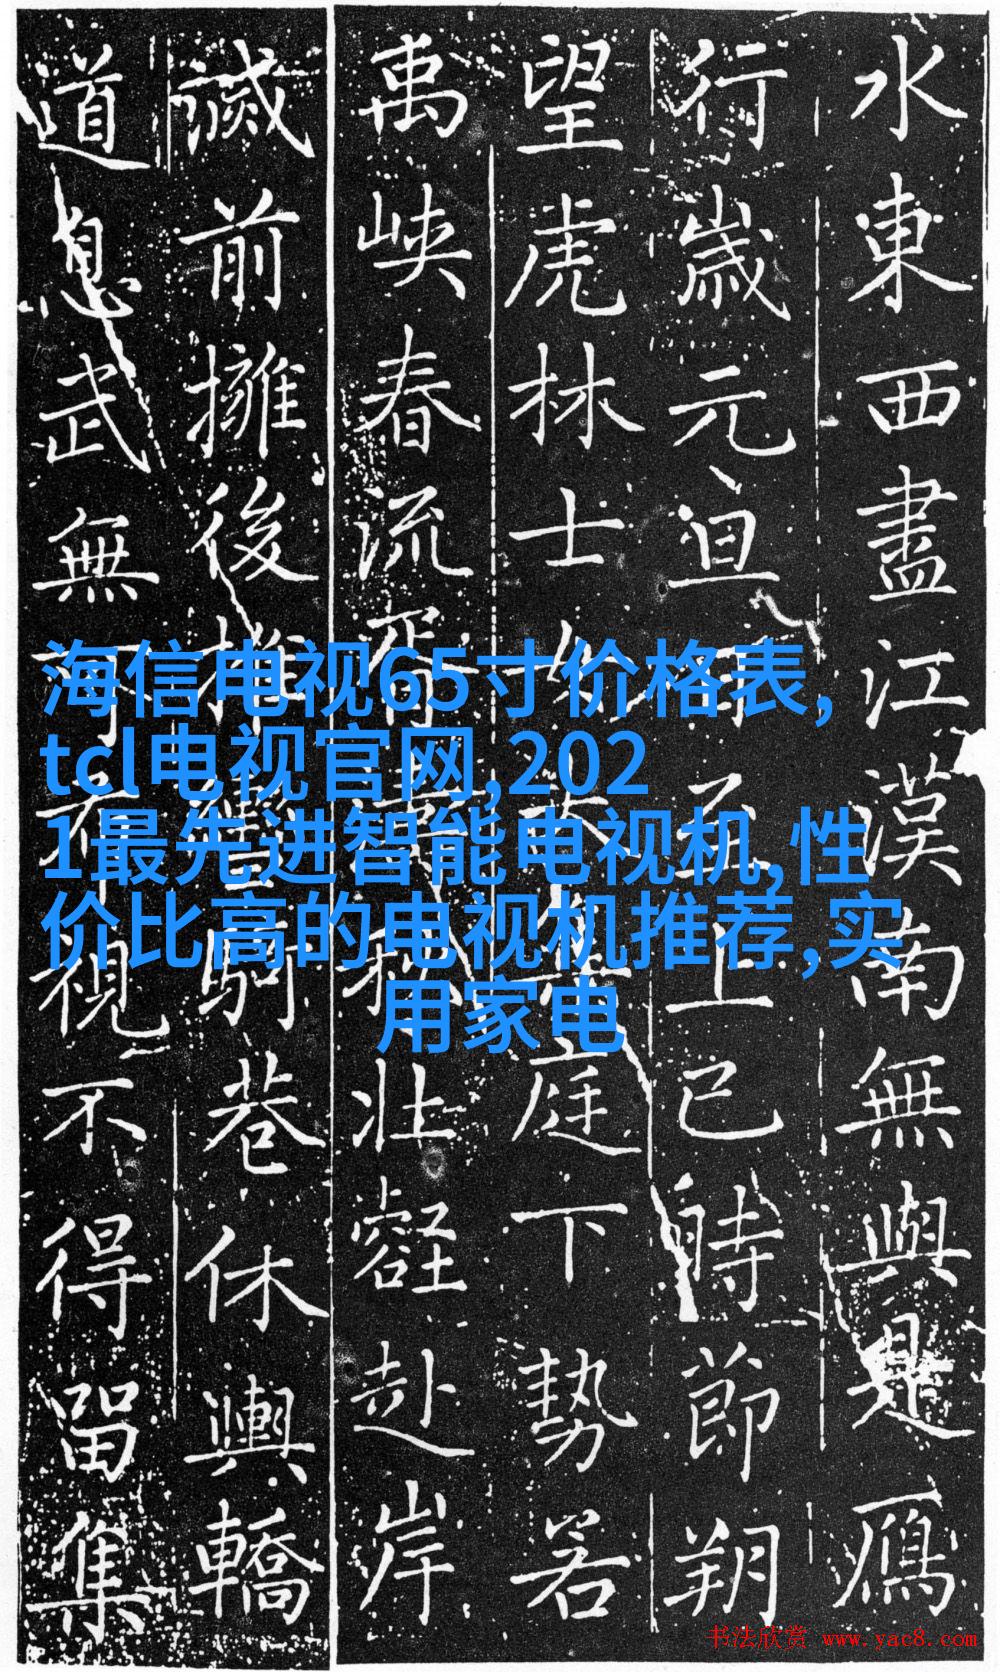 水東西盡江漢南無與是鴈
行歲元旦上巳時節朔
望虎林士庭下勢若
禹峽春流壯赴岸
滅前擁後巷休輿轎
道息武無視不得留集
海信电视65寸价格表,
tcl电视官网,202
1最先进智能电视机,性
价比高的电视机推荐,实
用家电
书法欣赏 www.yac8.com